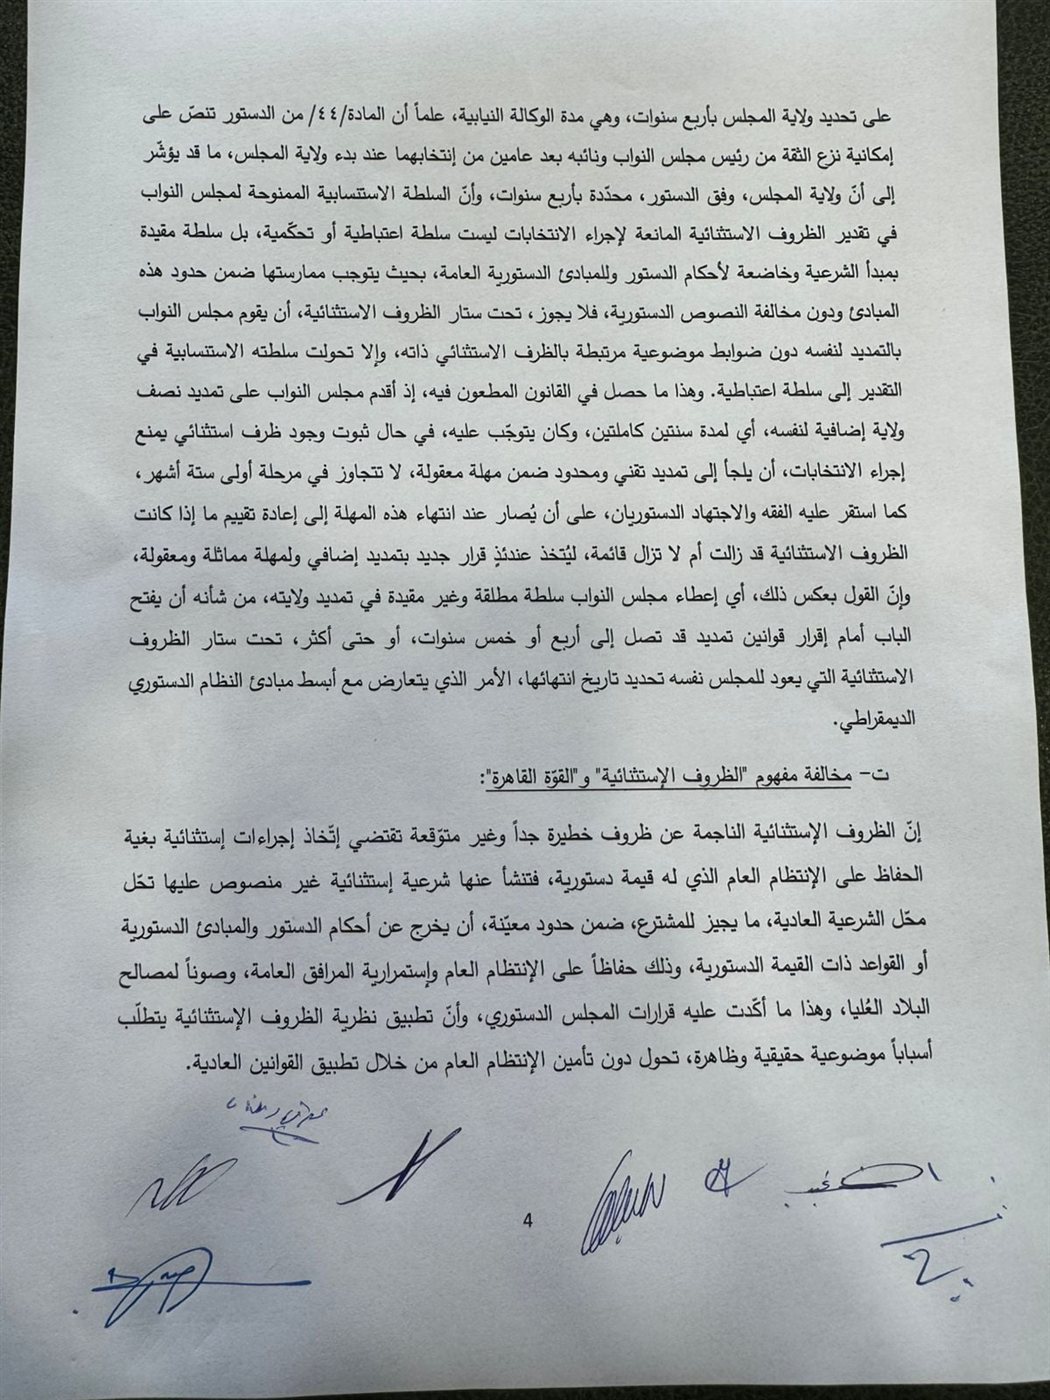 على تحديد ولاية المجلس بأربع سنوات، وهي مدة الوكالة النيابية، علماً أن المادة/٤٤/ من الدستور تنصّ على
إمكانية نزع الثقة من رئيس مجلس النواب ونائبه بعد عامين من إنتخابهما عند بدء ولاية المجلس، ما قد يؤشّر
إلى أنّ ولاية المجلس، وفق الدستور، محدّدة بأربع سنوات، وأنّ السلطة الاستنسابية الممنوحة لمجلس النواب
في تقدير الظروف الاستثنائية المانعة لإجراء الانتخابات ليست سلطة اعتباطية أو تحكّمية، بل سلطة مقيدة
بمبدأ الشرعية وخاضعة لأحكام الدستور وللمبادئ الدستورية العامة، بحيث يتوجب ممارستها ضمن حدود هذه
المبادئ ودون مخالفة النصوص الدستورية، فلا يجوز، تحت ستار الظروف الاستثنائية، أن يقوم مجلس النواب
بالتمديد لنفسه دون ضوابط موضوعية مرتبطة بالظرف الاستثنائي ذاته، وإلا تحولت سلطته الاستنسابية في
التقدير إلى سلطة اعتباطية. وهذا ما حصل في القانون المطعون فيه، إذ أقدم مجلس النواب على تمديد نصف
ولاية إضافية لنفسه، أي لمدة سنتين كاملتين، وكان يتوجّب عليه، في حال ثبوت وجود ظرف استثنائي يمنع
إجراء الانتخابات، أن يلجأ إلى تمديد تقني ومحدود ضمن مهلة معقولة، لا تتجاوز في مرحلة أولى ستة أشهر،
كما استقر عليه الفقه والاجتهاد الدستوريان، على أن يُصار عند انتهاء هذه المهلة إلى إعادة تقييم ما إذا كانت
الظروف الاستثنائية قد زالت أم لا تزال قائمة، ليُتخذ عندئذٍ قرار جديد بتمديد إضافي ولمهلة مماثلة ومعقولة،
وإنّ القول بعكس ذلك، أي إعطاء مجلس النواب سلطة مطلقة وغير مقيدة في تمديد ولايته، من شأنه أن يفتح
الباب أمام إقرار قوانين تمديد قد تصل إلى أربع أو خمس سنوات، أو حتى أكثر، تحت ستار الظروف
الاستثنائية التي يعود للمجلس نفسه تحديد تاريخ انتهائها، الأمر الذي يتعارض مع أبسط مبادئ النظام الدستوري
الديمقراطي.
ت- مخالفة مفهوم "الظروف الإستثنائية" و"القوّة القاهرة":
إنّ الظروف الإستثنائية الناجمة عن ظروف خطيرة جداً وغير متوّقعة تقتضي إتّخاذ إجراءات إستثنائية بغية
الحفاظ على الإنتظام العام الذي له قيمة دستورية، فتنشأ عنها شرعية إستثنائية غير منصوص عليها تحّل
محّل الشرعية العادية، ما يجيز للمشترع، ضمن حدود معيّنة، أن يخرج عن أحكام الدستور والمبادئ الدستورية
أو القواعد ذات القيمة الدستورية، وذلك حفاظاً على الإنتظام العام وإستمرارية المرافق العامة، وصوناً لمصالح
البلاد العُليا، وهذا ما أكّدت عليه قرارات المجلس الدستوري، وأنّ تطبيق نظرية الظروف الإستثنائية يتطلّب
أسباباً موضوعية حقيقية وظاهرة، تحول دون تأمين الإنتظام العام من خلال تطبيق القوانين العادية.
4